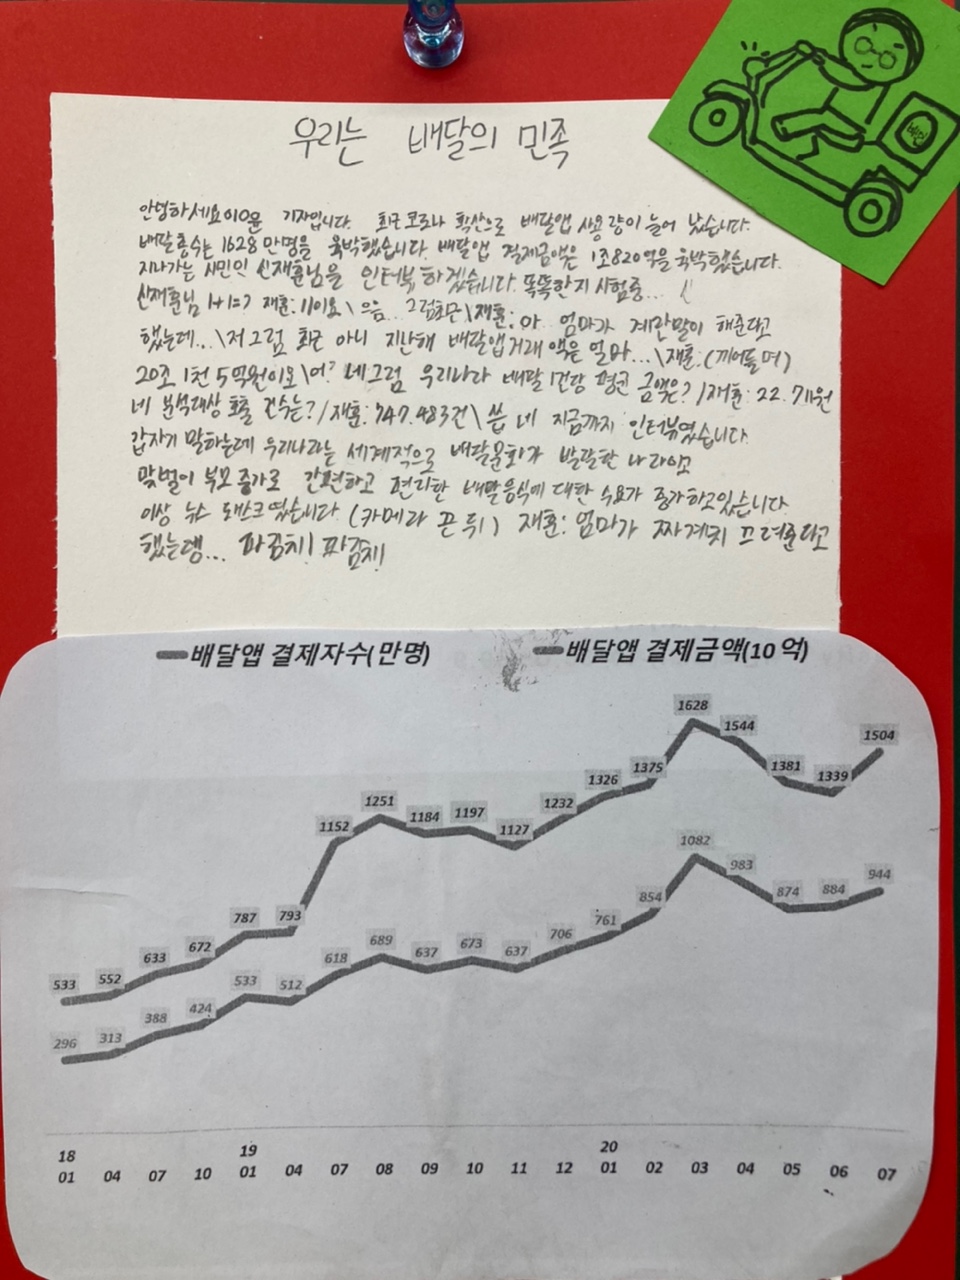 우리는 배달의 민족
배민
안녕하세요 이0윤 기자입니다. 최근 코로나 확산으로 배달앱 사용량이 늘어 났습니다.
배달 총수는 1628만명을 육박했습니다. 배달앱 결제금액은 1조820억을 육박했습니다.
지나가는 시민인 신재훈님을 인터뷰 하겠습니다. 똑똑한지 시험중...
신재훈님 1+1=? 재훈: 11이요 \ 으음... 그럼최근 \ 재훈: 아 엄마가 계란말이 해준다고
했는데... \ 저 그럼 최근 아니 지난해 배달앱거래 액은 얼마... \ 재훈: (끼어들며)
20조 1천 5억원이요 \ 어? 네그럼 우리나라 배달 1건당 평균 금액은? / 재훈: 22.711원
네 분석대상 호출 건수는? / 재훈: 747.483건 \ 씁 네 지금까지 인터뷰였습니다.
갑자기 말하는데 우리나라는 세계적으로 배달문화가 발달한 나라이고
맞벌이 부모 증가로 간편하고 편리한 배달음식에 대한 수요가 증가하고있습니다.
이상 뉴스 데스크였습니다. (카메라 끈 뒤) 재훈: 엄마가 끄려준다고
했는뎅... 파김치! 파김치!
배달앱 결제자수(만명) 배달앱 결제금액(10억)
1628
1544
1504
1375
1381
1339
1326
1251
1232
1184
1197
1152
1127
1082
983
944
884
874
854
787
793
761
706
689
673
672
637
637
633
618
552
533
533
512
424
388
313
296
18 19 20
01 04 07 10 01 04 07 08 09 10 11 12 01 02 03 04 05 06 07